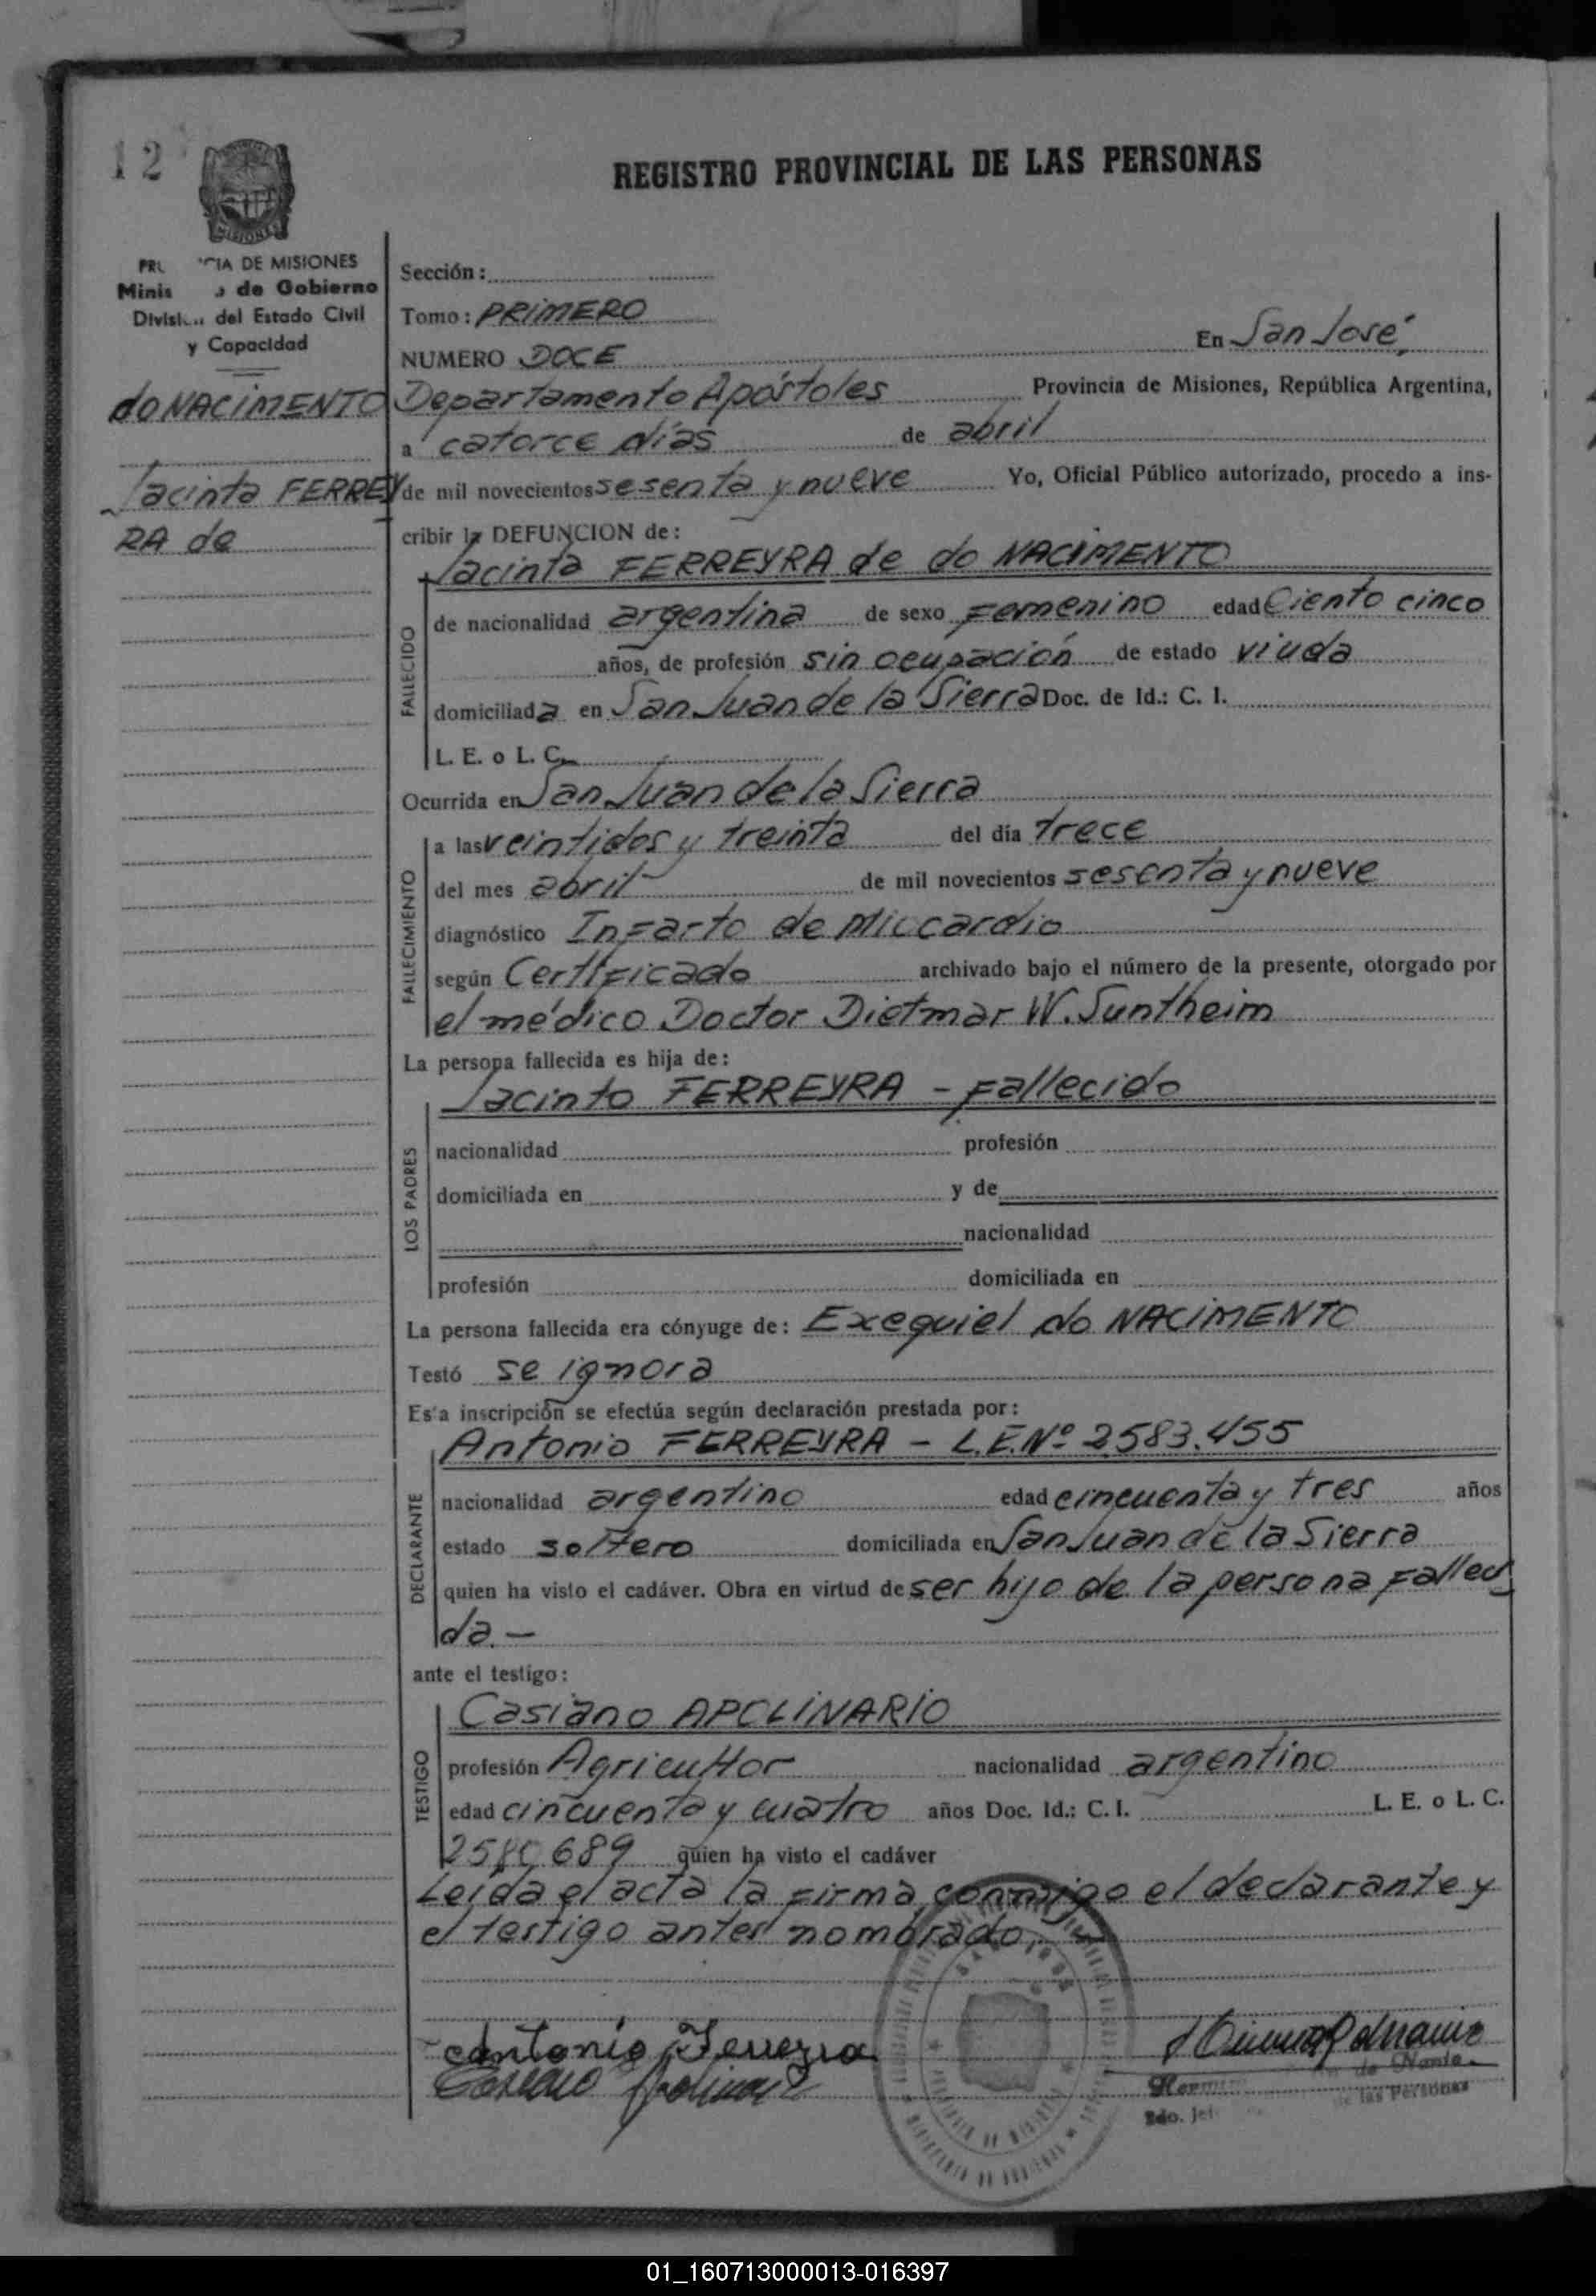 12
REGISTRO PROVINCIAL DE LAS PERSONAS
MISIONES
DE MISIONES
de Gobierno
del Estado Civil
y Capacidad
do NACIMENTO
Jacinta FERREY
RA de
Sección:
Tomo: PRIMERO
NUMERO DOCE
En San José,
Departamento Apóstoles Provincia de Misiones, República Argentina,
a catorce días de abril
de mil novecientos sesenta y nueve Yo, Oficial Público autorizado, procedo a ins-
cribir la DEFUNCION de:
Jacinta FERREYRA de do NACIMENTO
FALLECIDO
de nacionalidad argentina de sexo Femenino edad Ciento cinco
años, de profesión sin ocupación de estado viuda
domiciliada en San Juan de la Sierra Doc. de Id.: C. I.
L. E. o L. C.
Ocurrida en San Juan de la Sierra
FALLECIMIENTO
a las veintidos y treinta del día trece
del mes abril de mil novecientos sesenta y nueve
diagnóstico Infarto de Miocardio
según Certificado archivado bajo el número de la presente, otorgado por
el médico Doctor Dietmar W. Suntheim
La persona fallecida es hija de:
Jacinto FERREYRA - Fallecido
LOS PADRES
nacionalidad profesión
domiciliada en y de
nacionalidad
profesión domiciliada en
La persona fallecida era cónyuge de: Exequiel do NACIMENTO
Testó se ignora
Esta inscripción se efectúa según declaración prestada por:
Antonio FERREYRA - L.E.Nº 2583.455
DECLARANTE
nacionalidad argentino edad cincuenta y tres años
estado soltero domiciliada en San Juan de la Sierra
quien ha visto el cadáver. Obra en virtud de ser hijo de la persona falleci
da.-
ante el testigo:
Casiano APOLINARIO
TESTIGO
profesión Agricultor nacionalidad argentino
edad cincuenta y cuatro años Doc. Id.: C. I. L. E. o L. C.
689 quien ha visto el cadáver
Leída el acta la firma conmigo el declarante y
el testigo antes nombrado.-
Antonio Ferreyra
de las Personas
01_160713000013-016397